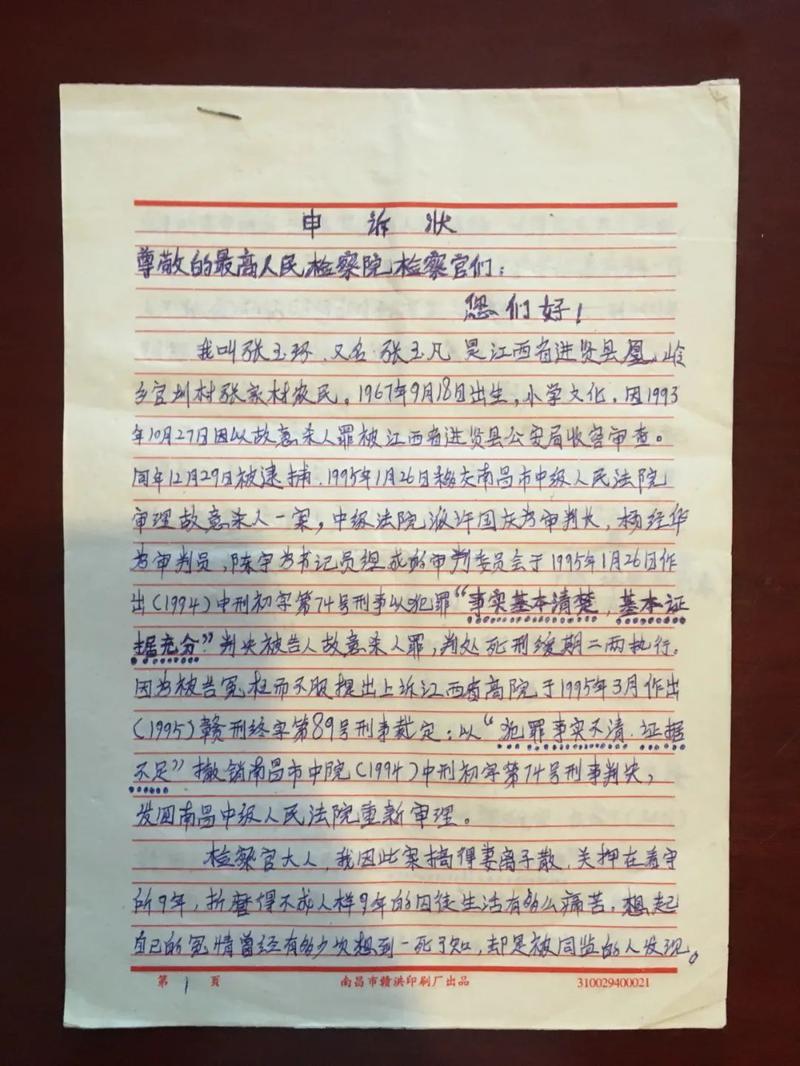 申诉状
尊敬的最高人民检察院检察官们：
您们好！
我叫张玉环、又名张玉凡是江西省进贤县凰岭
乡官圳村张家村农民，1967年9月18日出生，小学文化，因1993
年10月27日因以故意杀人罪被江西省进贤县公安局收容审查。
同年12月29日被逮捕，1995年1月26日移交南昌市中级人民法院
审理故意杀人一案，中级法院派许国庆为审判长，杨经华
为审判员，陈宇为书记员组成的审判委员会于1995年1月26日作
出(1994)中刑初字第74号刑事以犯罪“事实基本清楚，基本证
据充分”判决被告人故意杀人罪，判处死刑缓期二两执行。
因为被告冤枉而不服提出上诉江西省高院于1995年3月作出
(1995)赣刑终字第89号刑事裁定：以“犯罪事实不清.证据
不足”撤销南昌市中院(1994)中刑初字第74号刑事判决，
发回南昌中级人民法院重新审理。
检察官大人，我因此案搞得妻离子散，关押在看守
所9年，折磨得不成人样9年的囚徒生活有多么痛苦。想起
自己的冤情曾经有多少次想到一死了知，却是被同监的人发现。
第 1 页 南昌市赣洪印刷厂出品 310029400021